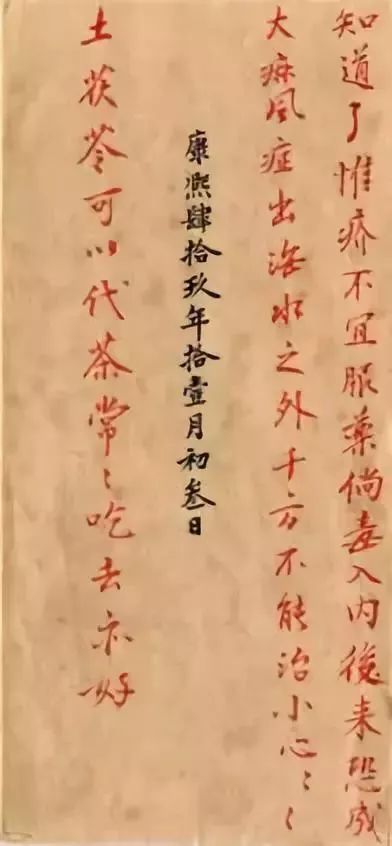 知道了惟疥不宜服藥倘毒入内後来恐成
大麻风症出海水之外千方不能治小心〻〻
康熙肆拾玖年拾壹月初叁日
土茯苓可以代茶常〻吃去亦好